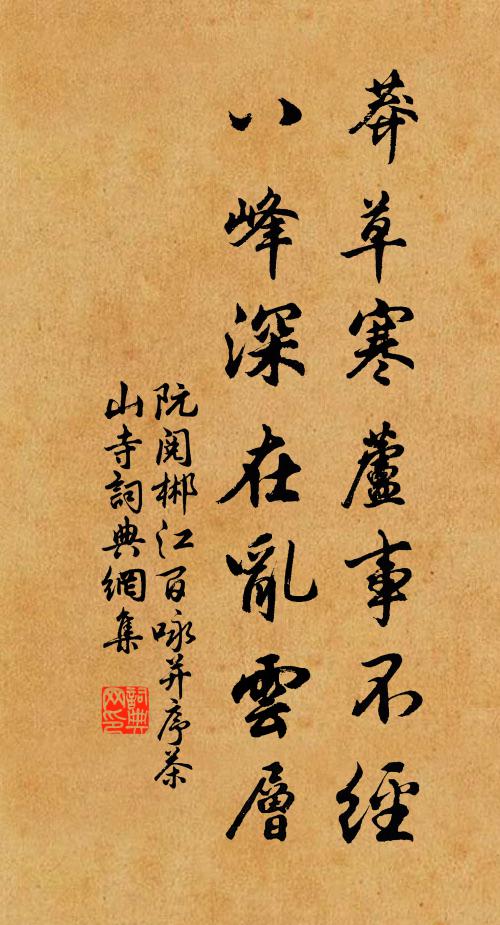 莽草寒蘆事不經
八峰深在亂雲層
阮閱郴江百咏并序茶
山寺詞典網集
詞典网印